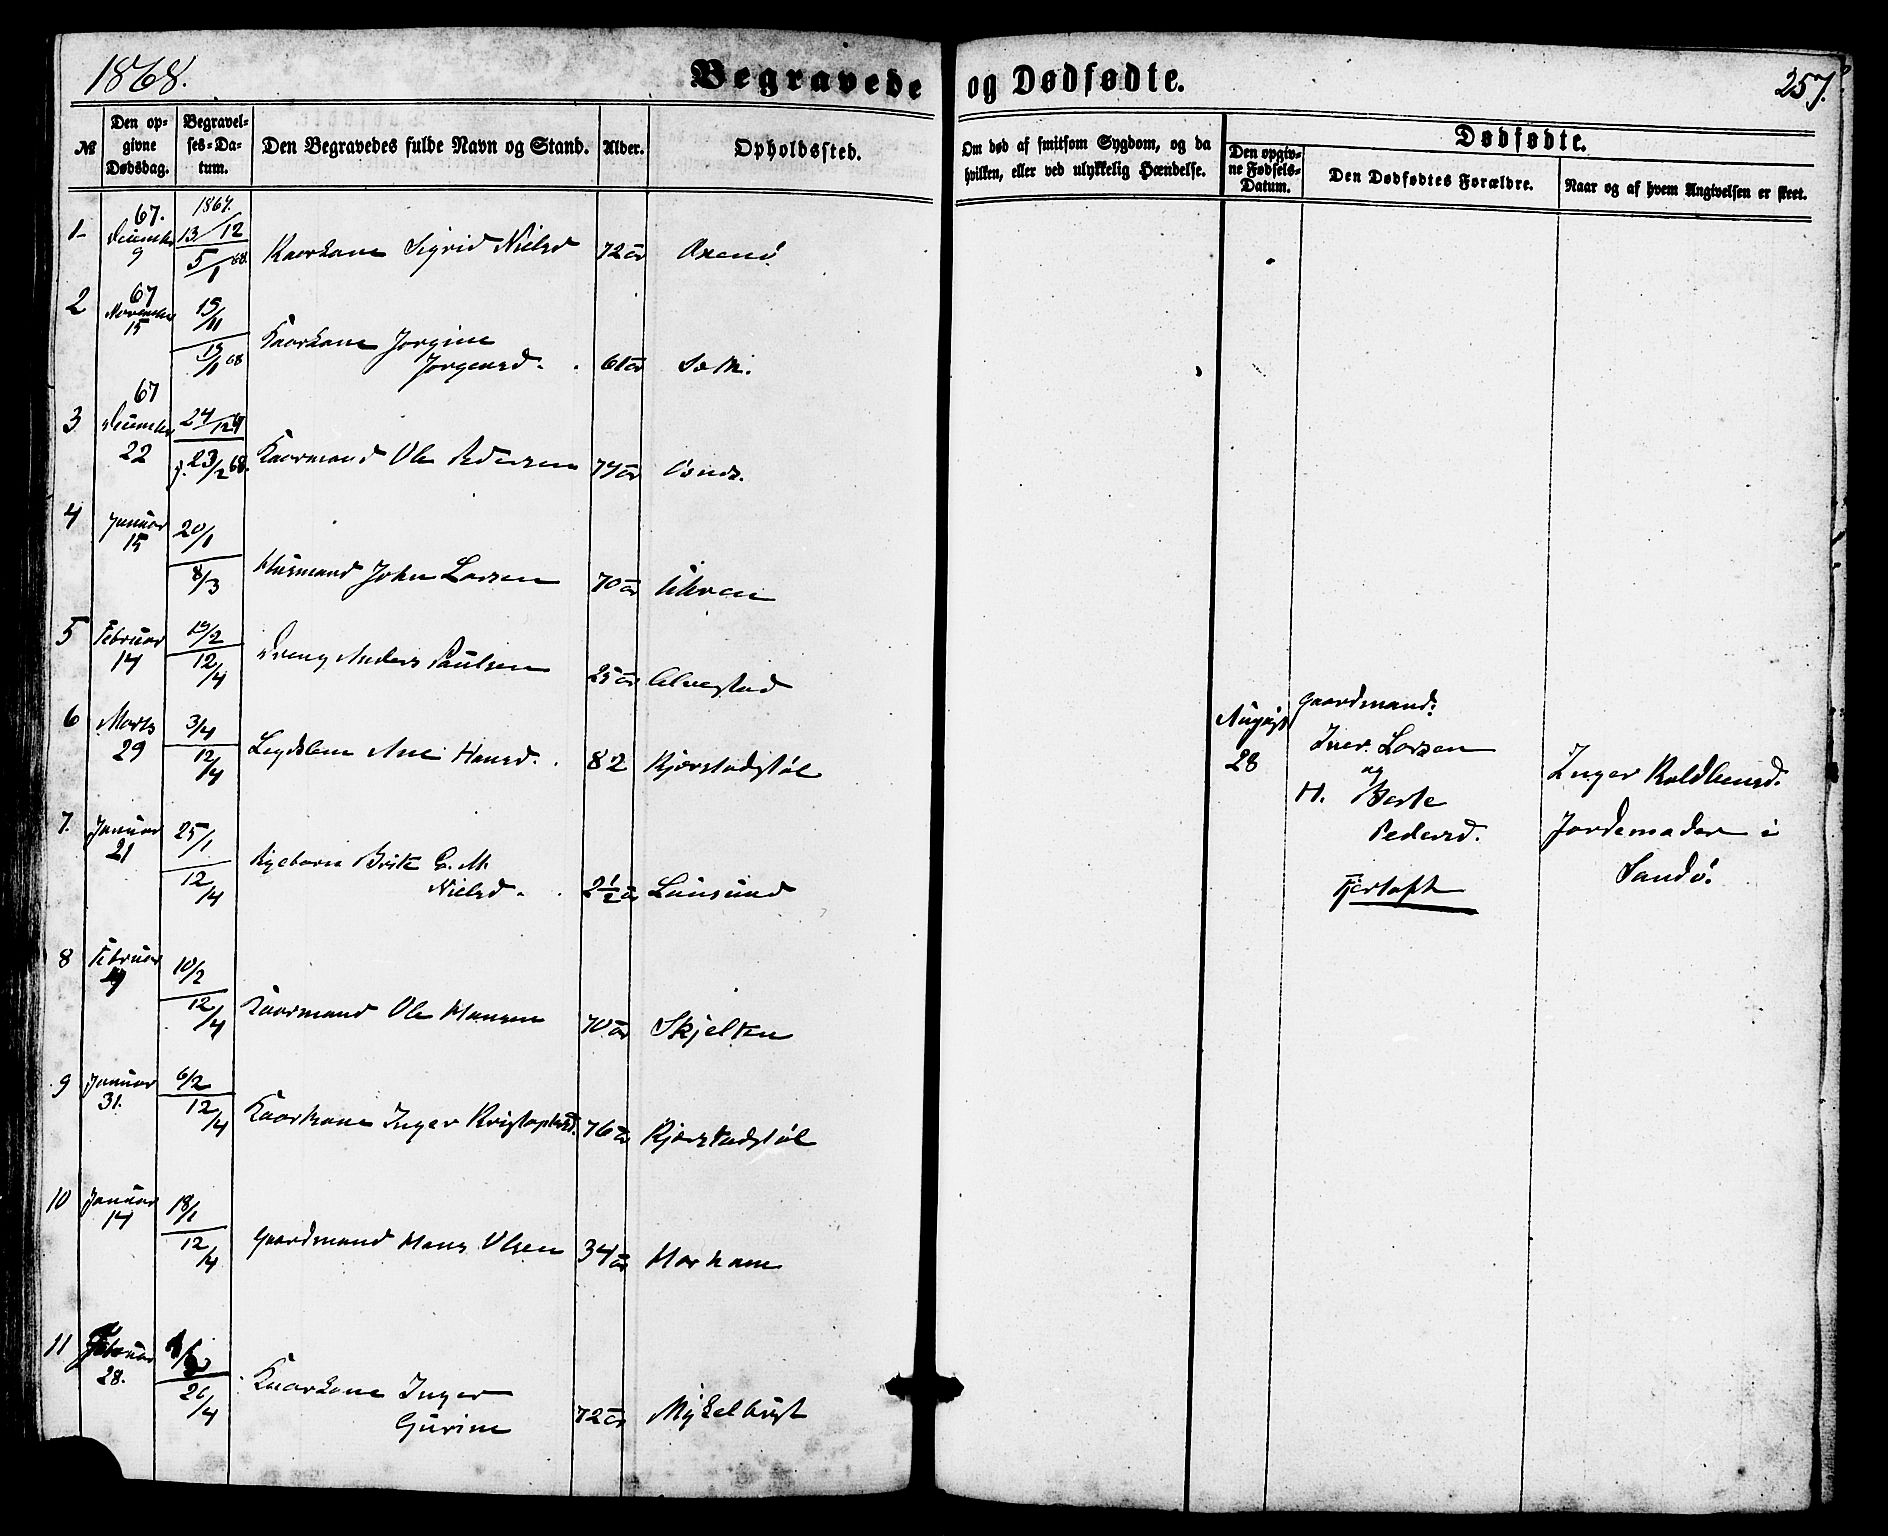 1868.
Begravede og Dødfødte.
257.
№
Den op-
givne
Dødsdag.
Begravel-
ses-Da-
tum.
Den Begravedes fulde Navn og Stand.
Alder.
Opholdssted.
Om død af smitsom Sygdom, og da
hvilken, eller ved ulykkelig Hændelse.
Dødfødte.
Den opgiv-
ne Fødsels-
Datum.
Den Dødfødtes Forældre.
Naar og af hvem Angivelsen er skeet.
1
67.
December
9
1867.
13/12
5/1 68.
Kaarkone Sigrid Nielsd
72 år
2
67
November
15
19/11
19/1 68
Kaarkone Jorgine
Jorgensd.
61 år
3
67
December
22
24/12 67
23/2 68.
Kaarmand Ole Pedersen
74 år
4
Januar
15
20/1
8/3
Husmand John Larsen
70 år
5
Februar
14
19/2
12/4
Dreng Anders Paulsen
25 år
Alvestad
6
Marts
29
3/4
12/4
Legdslem Ane Hansd.
82
Kjærstadstøl
7.
Januar
21
25/1
12/4
Pigebarn Brite G. M.
Nielsd.
2 1/2 år
Lausund
8
Februar
10/2
12/4
Kaarmand Ole Hansen
70 år
Skjelten
9
Januar
31.
6/2
12/4
Kaarkone Inger Kristophersd.
76 år
Kjærstadstøl
10
Januar
14
18/1
12/4
Gaardmand Hans Olsen
34 år
Harham
11
Februar
28.
26/4
Kaarkone Inger
Gurine
72 år
Myкlebust
August
28
Gaardmand:
Iver Larsen
og
H. Berte
Pedersd.
Fjørtoft
Inger Roldhensd.
Jordemoder i
Sandø.